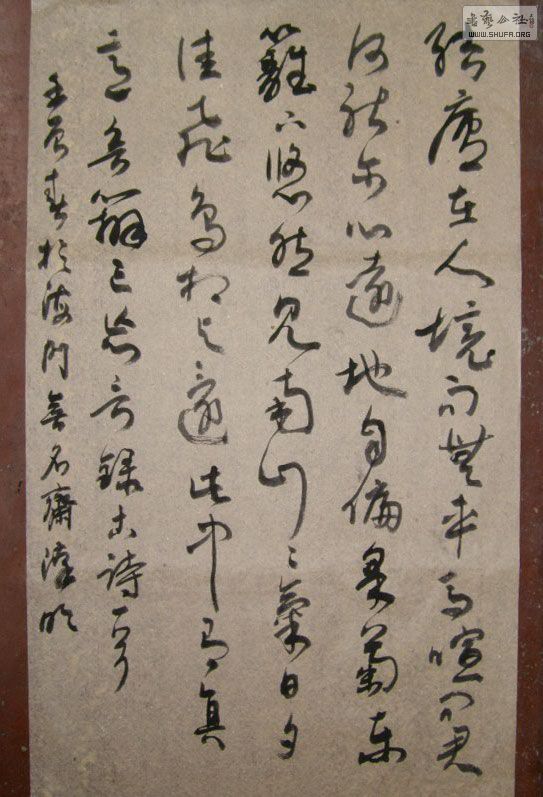 書藝公社
WWW.SHUFA.ORG
結廬在人境而無車馬喧問君
何能尔心遠地自偏采菊东
籬下悠然見南山〻氣日夕
佳飛鳥相与還此中有真
意欲辯已忘言錄古詩一首
春於海門無名齋